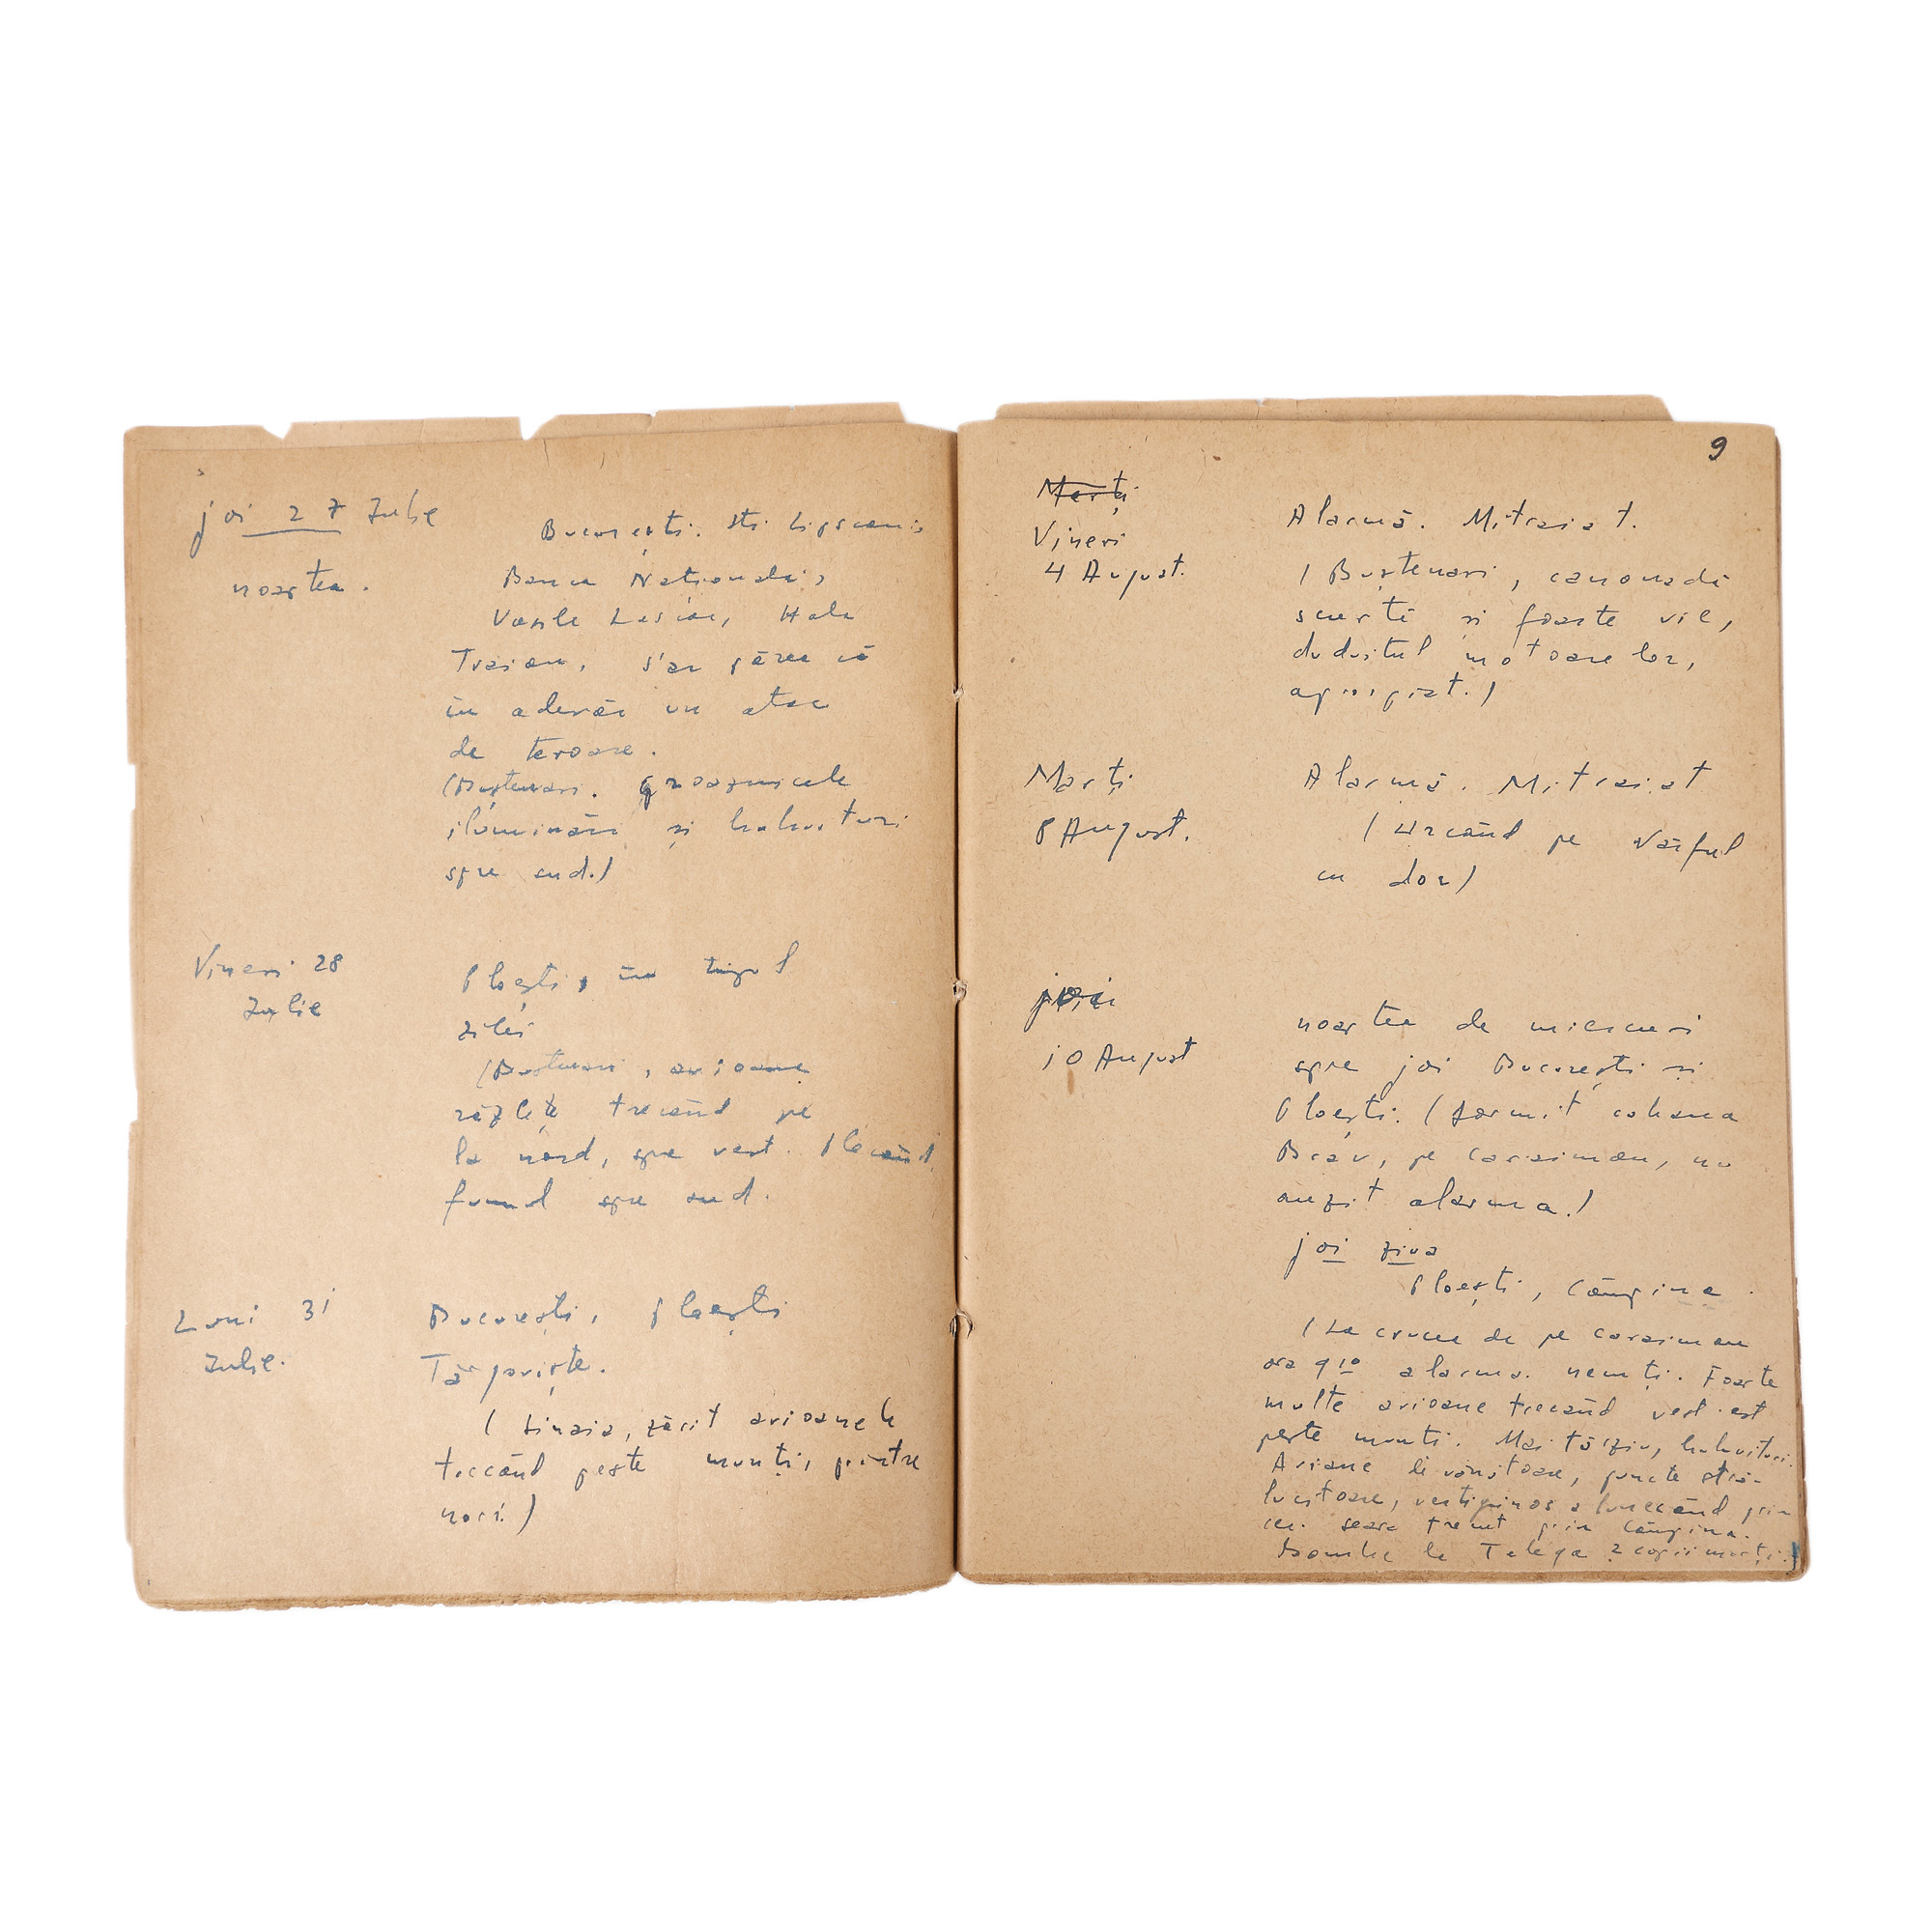 joi 27 Iulie
noaptea.
București. str. Lipscani,
Banca Națională,
Vasile Lascăr, Hala
Traian, s'ar părea că
în adevăr un atac
de teroare.
(Buștenari. groaznicele
iluminări și bubuituri
spre sud.)
Vineri 28
Iulie
Ploești, în timpul
zilei
(Buștenari, avioane
răzlețe trecând pe
la nord, spre vest. Plecând,
fumul spre sud.
Luni 31
Iulie.
București, Ploești
Târgoviște.
(Sinaia, zărit avioanele
trecând peste munți, printre
nori.)
9
Marți
Vineri
4 August.
Alarmă. Mitraiat.
(Buștenari, canonadă
scurtă și foarte vie,
duduitul motoarelor,
apropiat.)
Marți
8 August.
Alarmă. Mitraiat
(Urcând pe Vârful
cu dor)
joi
10 August
noaptea de miercuri
spre joi București și
Ploești. (Dormit cabana
pe Caraiman, nu
auzit alarma.)
joi ziua
Ploești, Câmpina.
(La crucea de pe Caraiman
ora 9 10 alarma. nemți. Foarte
multe avioane trecând vest-est
peste munți. Mai târziu, bubuituri.
Avioane de vânătoare, puncte stră-
lucitoare, vertiginos alunecând prin
cer. seara trecut prin Câmpina.
Bombe la Telega 2 copii morți.)